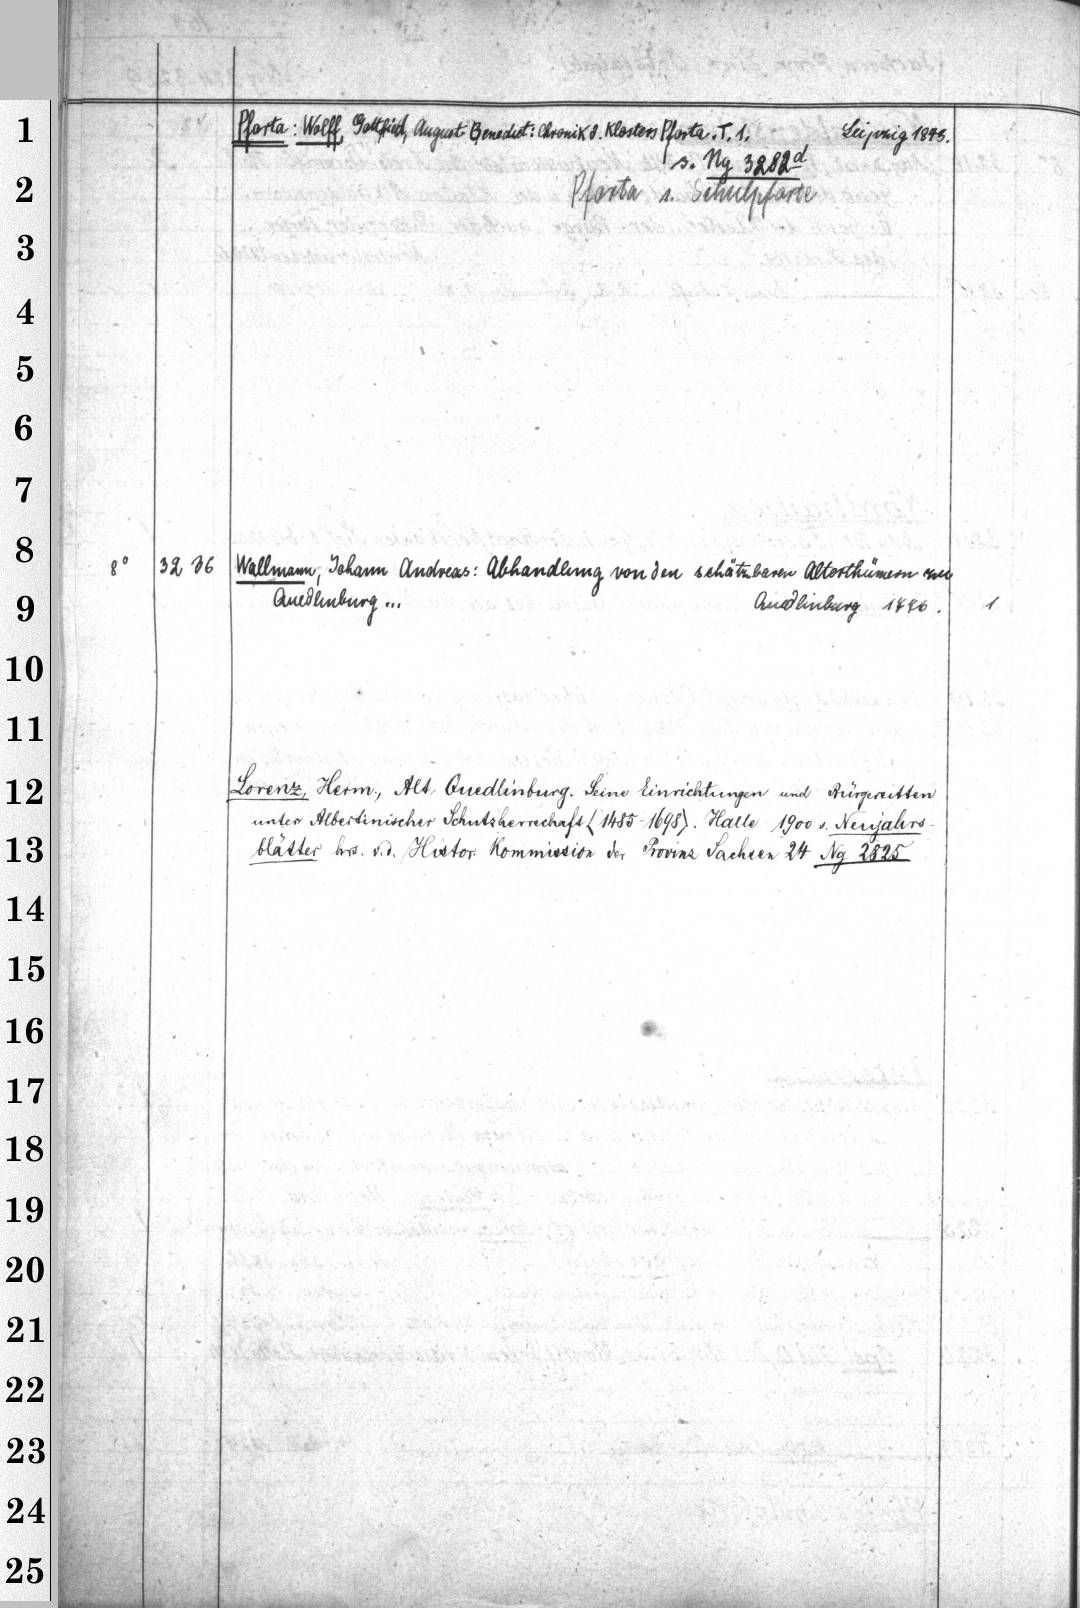 1
Pforta: Wolff, Gottfried, August Benedict: Chronik d. Klosters Pforta. T. 1. Leipzig 1843.
s. Ng 3282d
2
Pforta s. Schulpforte
3
4
5
6
7
8
8° 32 36 Wallmann, Johann Andreas: Abhandlung von den schätzbaren Alterthümern zu
9
Quedlinburg... Quedlinburg 1776. 1
10
11
12
Lorenz, Herm., Alt Quedlinburg. Seine Einrichtungen und Bürgersitten
unter Albertinischer Schutzherrschaft (1485-1698). Halle 1900 s. Neujahrs-
13
blätter hrs. v. d. Histor. Kommission der Provinz Sachsen 24 Ng 2825
14
15
16
17
18
19
20
21
22
23
24
25